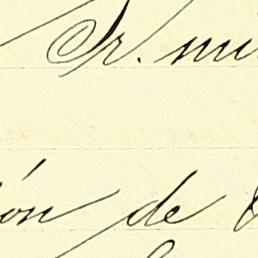 Sr. mi
ón de